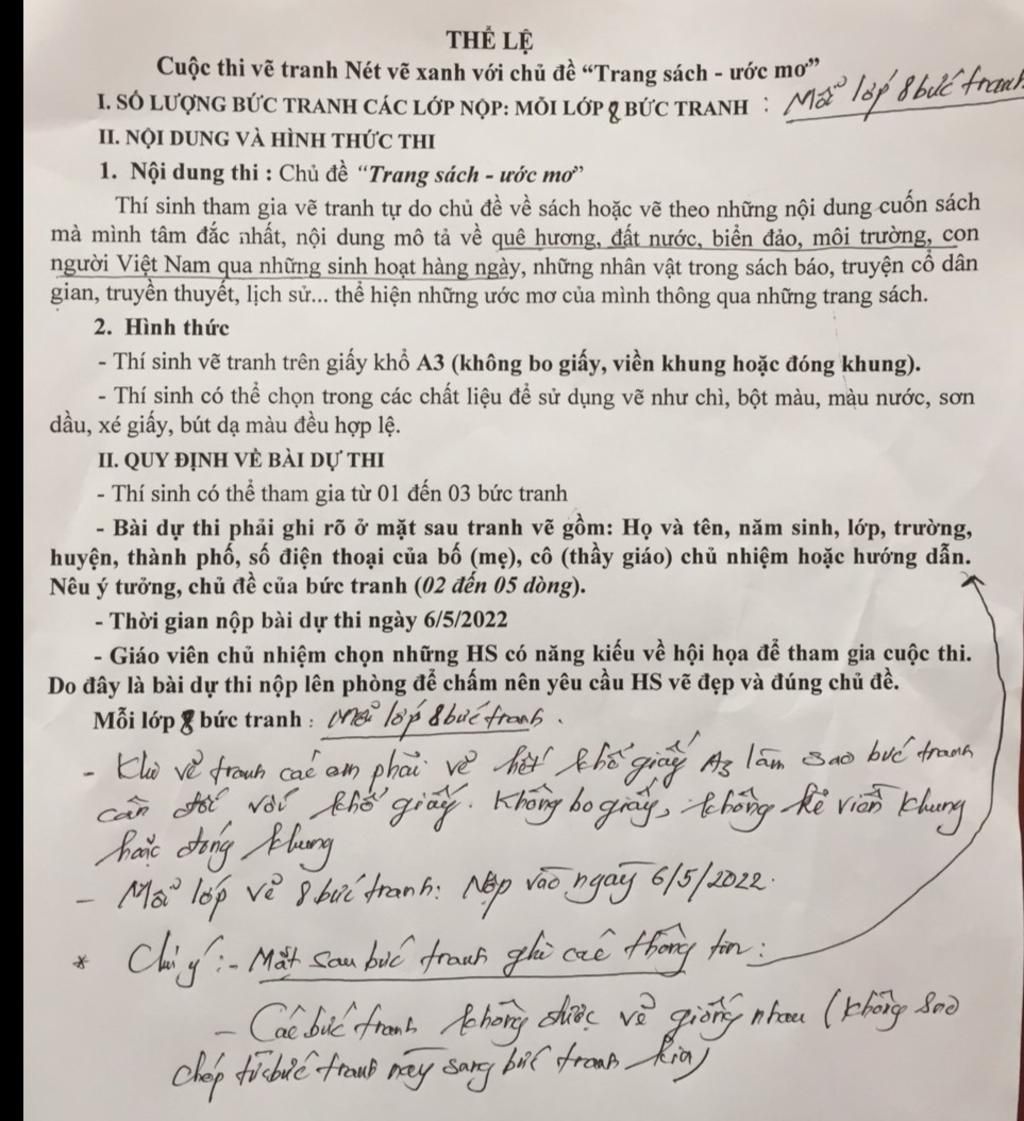 THỂ LỆ
Cuộc thi vẽ tranh Nét vẽ xanh với chủ đề “Trang sách - ước mơ”
I. SỐ LƯỢNG BỨC TRANH CÁC LỚP NỘP: MỖI LỚP 8 BỨC TRANH : Mỗi lớp 8 bức tranh
II. NỘI DUNG VÀ HÌNH THỨC THI
1. Nội dung thi : Chủ đề “Trang sách - ước mơ”
Thí sinh tham gia vẽ tranh tự do chủ đề về sách hoặc vẽ theo những nội dung cuốn sách
mà mình tâm đắc nhất, nội dung mô tả về quê hương, đất nước, biển đảo, môi trường, con
người Việt Nam qua những sinh hoạt hàng ngày, những nhân vật trong sách báo, truyện cổ dân
gian, truyền thuyết, lịch sử... thể hiện những ước mơ của mình thông qua những trang sách.
2. Hình thức
- Thí sinh vẽ tranh trên giấy khổ A3 (không bo giấy, viền khung hoặc đóng khung).
- Thí sinh có thể chọn trong các chất liệu để sử dụng vẽ như chì, bột màu, màu nước, sơn
dầu, xé giấy, bút dạ màu đều hợp lệ.
II. QUY ĐỊNH VỀ BÀI DỰ THI
- Thí sinh có thể tham gia từ 01 đến 03 bức tranh
- Bài dự thi phải ghi rõ ở mặt sau tranh vẽ gồm: Họ và tên, năm sinh, lớp, trường,
huyện, thành phố, số điện thoại của bố (mẹ), cô (thầy giáo) chủ nhiệm hoặc hướng dẫn.
Nêu ý tưởng, chủ đề của bức tranh (02 đến 05 dòng).
- Thời gian nộp bài dự thi ngày 6/5/2022
- Giáo viên chủ nhiệm chọn những HS có năng kiếu về hội họa để tham gia cuộc thi.
Do đây là bài dự thi nộp lên phòng để chấm nên yêu cầu HS vẽ đẹp và đúng chủ đề.
Mỗi lớp 8 bức tranh : Mỗi lớp 8 bức tranh.
- Khi vẽ tranh các em phải vẽ hết khổ giấy A3 làm sao bức tranh
cân đối với khổ giấy. Không bo giấy, không kẻ viền khung
hoặc đóng khung
- Mỗi lớp vẽ 8 bức tranh: Nộp vào ngày 6/5/2022.
* Chú ý: - Mặt sau bức tranh ghi các thông tin:
- Các bức tranh không được vẽ giống nhau (không sao
chép từ bức tranh này sang bức tranh kia)